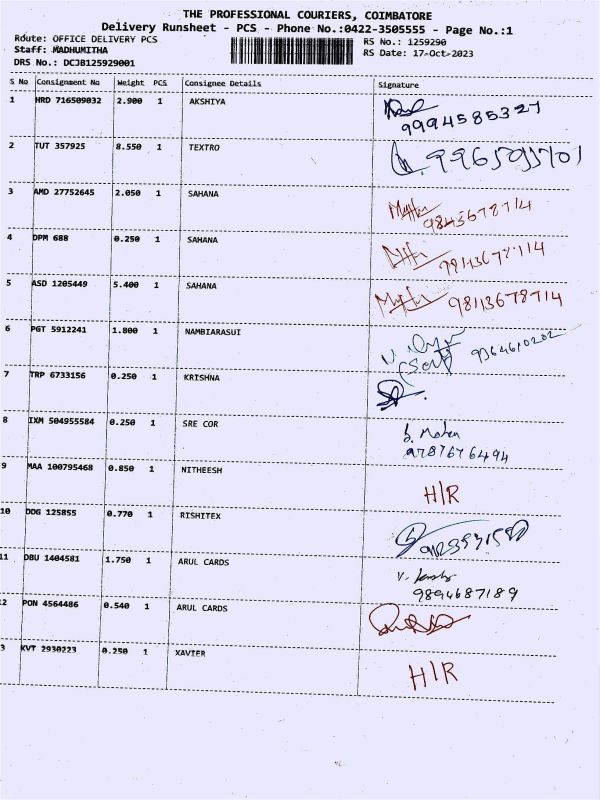 THE PROFESSIONAL COURIERS, COIMBATORE
Delivery Runsheet - PCS - Phone No.:0422-3505555 - Page No.:1
Route: OFFICE DELIVERY PCS
RS No.: 1259290
Staff: MADHUMITHA
RS Date: 17-Oct-2023
DRS No.: DCJB125929001
S No Consignment No Weight PCS Consignee Details Signature
1 HRD 716509032 2.900 1 AKSHIYA
9994585327
2 TUT 357925 8.550 1 TEXTRO
3 AMD 27752645 2.050 1 SAHANA
4 DPM 688 0.250 1 SAHANA
5 ASD 1205449 5.400 1 SAHANA
6 PGT 5912241 1.800 1 NAMBIARASUI
9364610202
7 TRP 6733156 0.250 1 KRISHNA
8 IXM 504955584 0.250 1 SRE COR
9787676494
9 MAA 100795468 0.850 1 NITHEESH
H/R
10 DDG 125855 0.770 1 RISHITEX
11 DBU 1404581 1.750 1 ARUL CARDS
9894687189
2 PON 4564486 0.540 1 ARUL CARDS
3 KVT 2930223 0.250 1 XAVIER
H/R